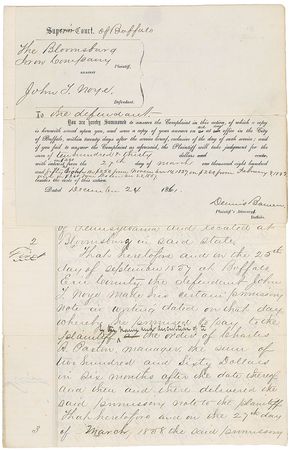 Superior Court of Buffalo
The Bloomsburg
Iron Company
Plaintiff,
AGAINST
John T. Noye
Defendant.
To the defendant
You are hereby Summoned to answer the Complaint in this action, of which a copy
is herewith served upon you, and serve a copy of your answer on us at our office in the City
of Buffalo, within twenty days after the service hereof, exclusive of the day of such service; and
if you fail to answer the Complaint as aforesaid, the Plaintiff will take judgment for the
sum of dollars and cents,
with interest from the day of March one thousand eight hundred
and fifty
Dated December 24 186
Dennis Bowen
Plaintiff's Attorney
Buffalo.
of Pennsylvania and located at
Bloomsburg in said state
2
That heretofore and on the 25th
day of September 1857 at Buffalo
Erie County the defendant John
T. Noye made his certain promissory
note in writing dated on that day
whereby he promised to pay to the
plaintiff the order of Charles
R Paxton manager the sum of
two hundred and Sixty Dollars
in six months after the date thereof
and then and there delivered the
said promissory note to the plaintiff
That heretofore and on the 27th day
3
of March, 1858 the said promissory